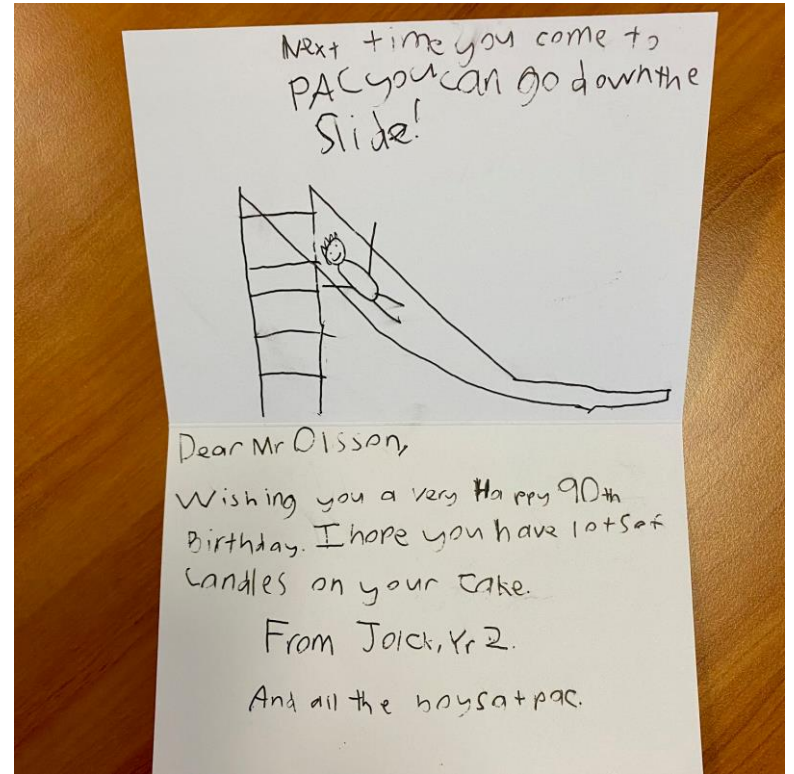 Next time you come to
PAC you can go down the
Slide!
Dear Mr Olsson,
Wishing you a very Happy 90th
Birthday. I hope you have lots of
Candles on your Cake.
From Jolck, Yr 2.
And all the boys at pac.